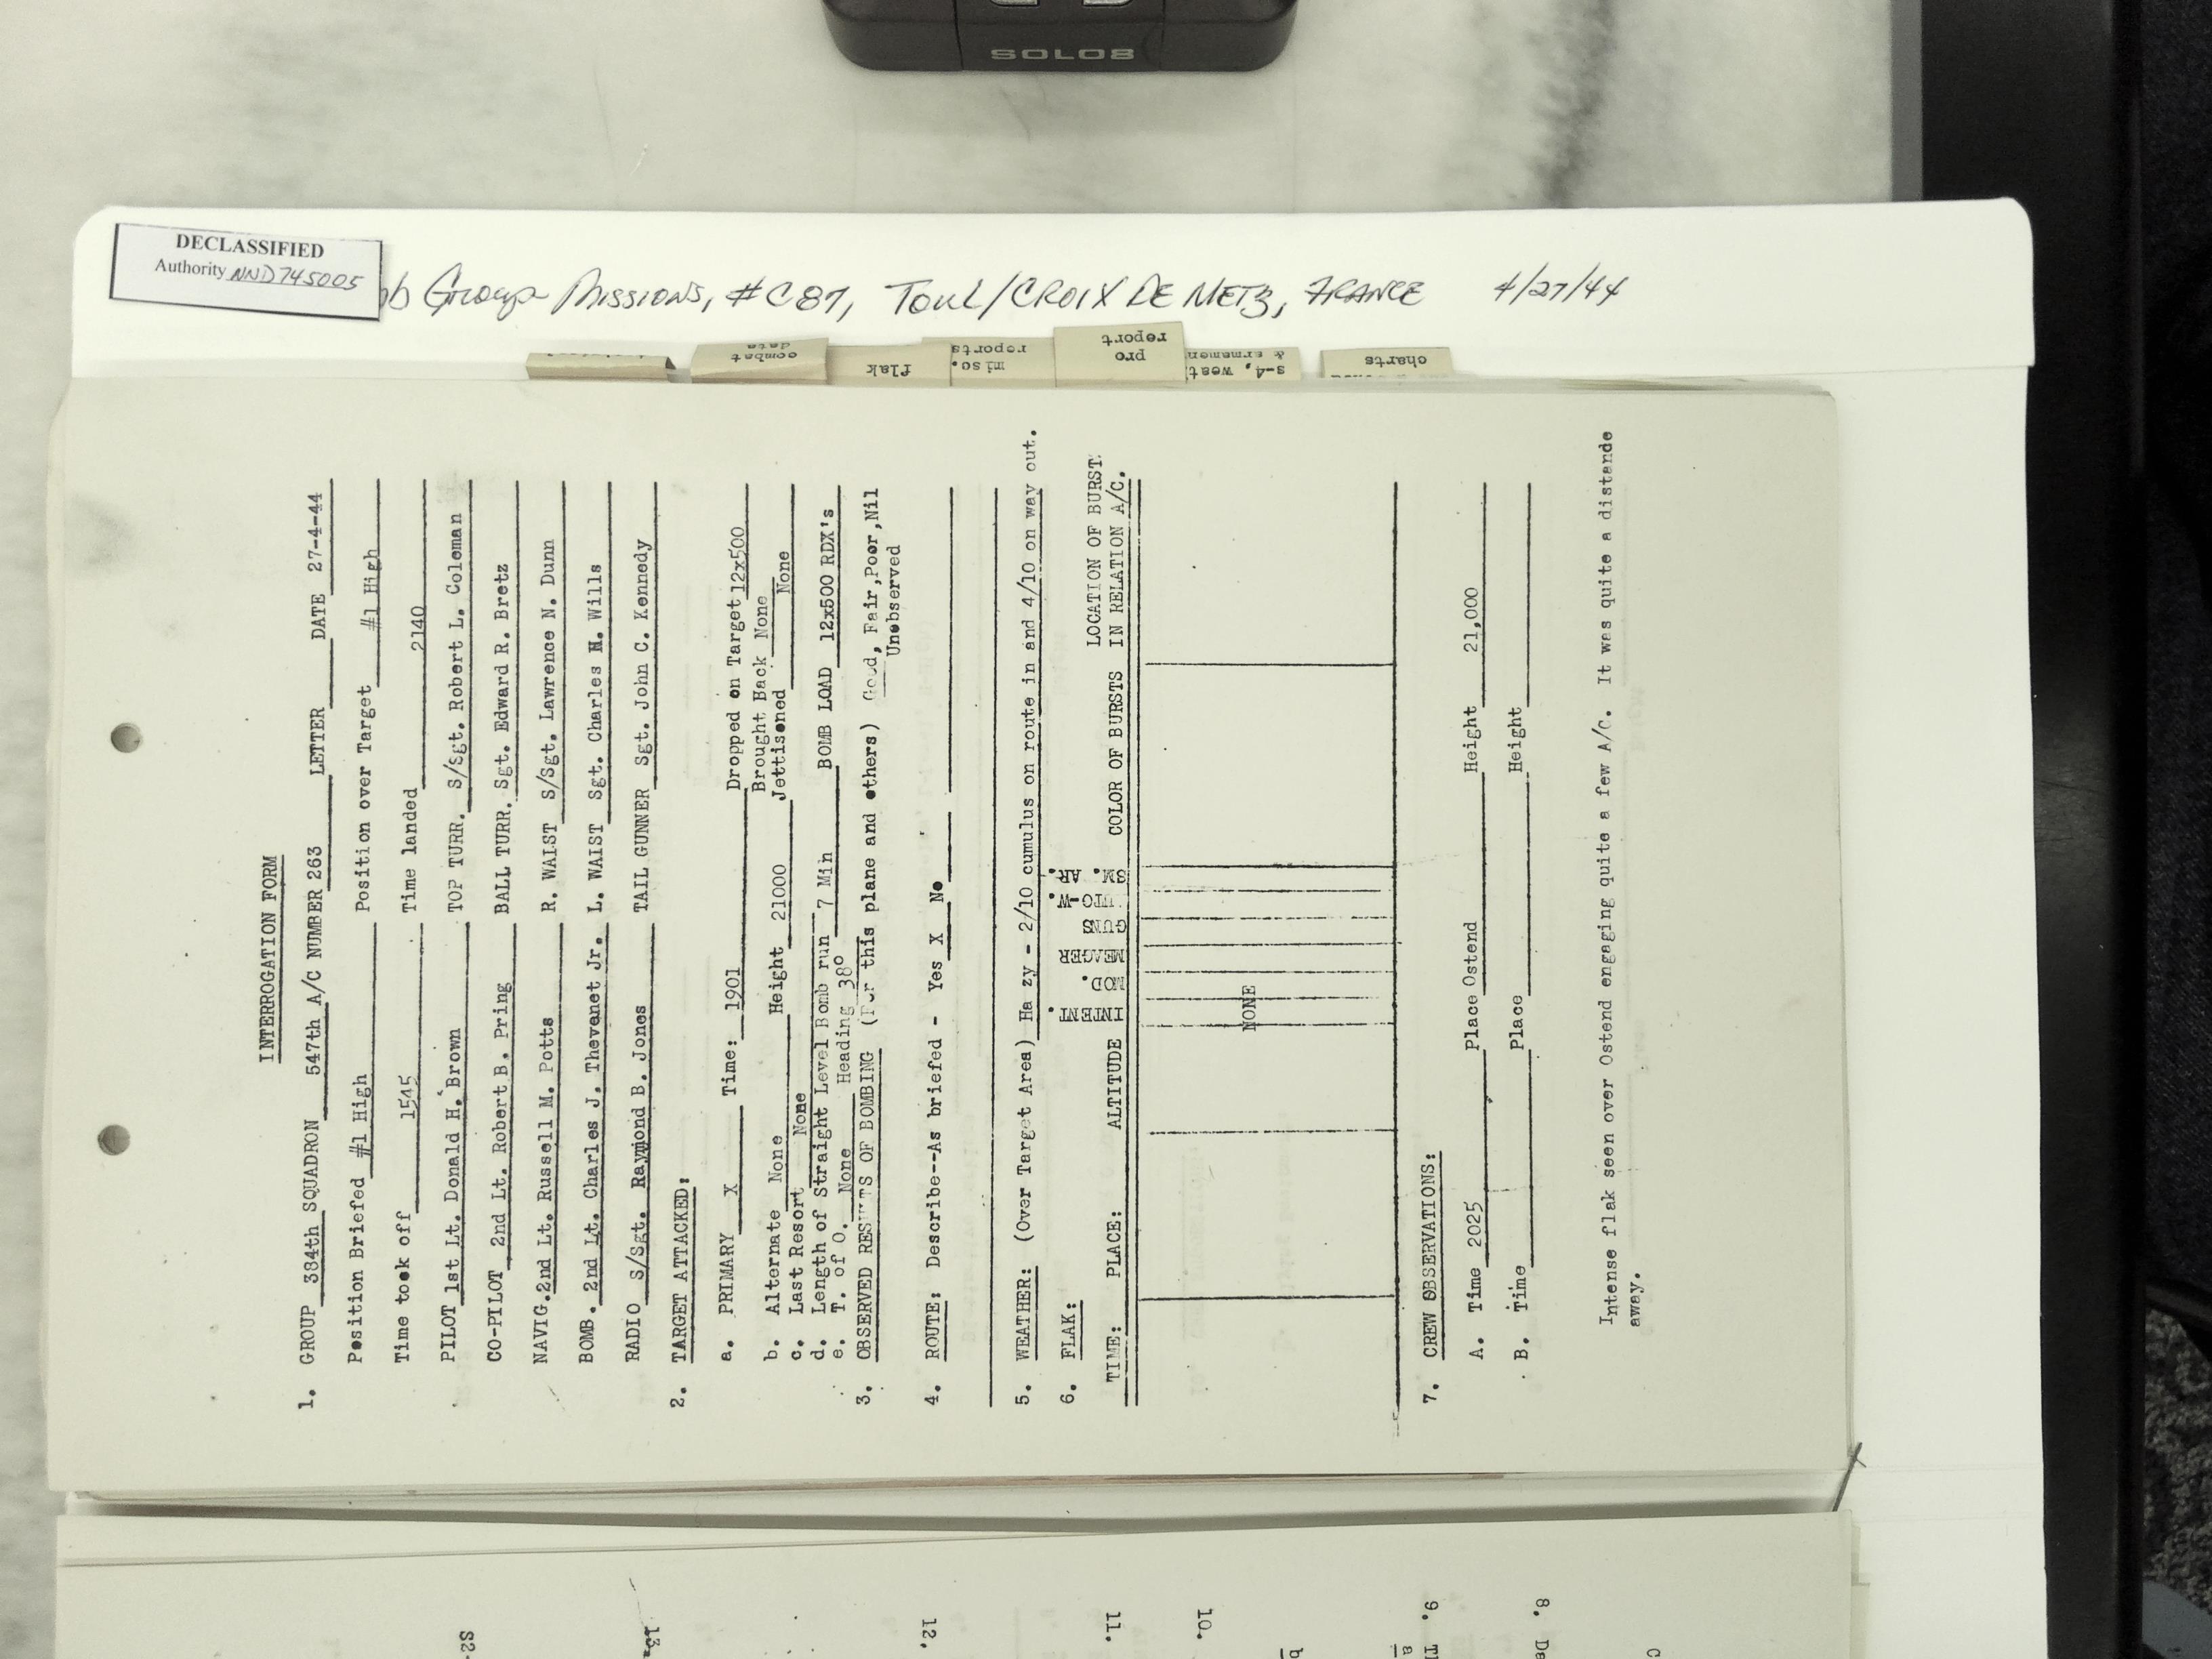 SOLO8
DECLASSIFIED
Authority NND745005
Group Missions, #C87, Toul/CROIX DE METZ, FRANCE 4/27/44
combat
data
flak
misc.
reports
pro
report
s-4,
charts
INTERROGATION FORM
1. GROUP 384th SQUADRON 547th A/C NUMBER 263 LETTER DATE 27-4-44
Position Briefed #1 High Position over Target #1 High
Time took off 1545 Time landed 2140
PILOT 1st Lt. Donald H. Brown TOP TURR. S/Sgt. Robert L. Coleman
CO-PILOT 2nd Lt. Robert B. Pring BALL TURR. Sgt. Edward R. Bretz
NAVIG. 2nd Lt. Russell M. Potts R. WAIST S/Sgt. Lawrence N. Dunn
BOMB. 2nd Lt. Charles J. Thevenet Jr. L. WAIST Sgt. Charles H. Wills
RADIO S/Sgt. Raymond B. Jones TAIL GUNNER Sgt. John C. Kennedy
2. TARGET ATTACKED:
a. PRIMARY X Time: 1901 Dropped on Target 12x500
Brought Back None
b. Alternate None Height 21000 Jettisoned None
c. Last Resort None
d. Length of Straight Level Bomb run 7 Min BOMB LOAD 12x500 RDX's
e. T. of O. None Heading 38°
3. OBSERVED RESULTS OF BOMBING (For this plane and others) Good, Fair,Poor,Nil
Unobserved
4. ROUTE: Describe--As briefed - Yes X No
5. WEATHER: (Over Target Area) Ha zy - 2/10 cumulus on route in and 4/10 on way out.
6. FLAK:
TIME: PLACE: ALTITUDE INTENT. MOD. MEAGER GUNS AUTO-W. SM. AR. COLOR OF BURSTS LOCATION OF BURST
IN RELATION A/C.
NONE
7. CREW OBSERVATIONS:
A. Time 2025 Place Ostend Height 21,000
B. Time Place Height
Intense flak seen over Ostend engaging quite a few A/C. It was quite a distande
away.
S2-
13.
12.
11.
10.
b
9. T
a
8. De